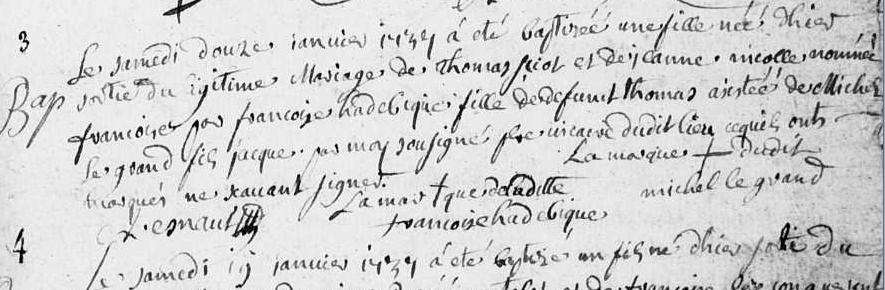 3
Le samedi douze janvier 1737 à été baptizéé une fille néé d'hier
Bap sortie du legitime Mariage de Thomas piot et de jeanne nicolle nomméé
francoise par francoise hadebique fille de defunt thomas asistéé de Michel
le grand fils jacque par moy sousigné vicaire dudit lieu cequils onts
marqués ne scavant signer La marque + dudit
La mar + que deladitte michel le grand
esnault francoise hadebique
4
Le samedi janvier 1737 à été baptizé un fils né d'hier sorti du
et de francoise